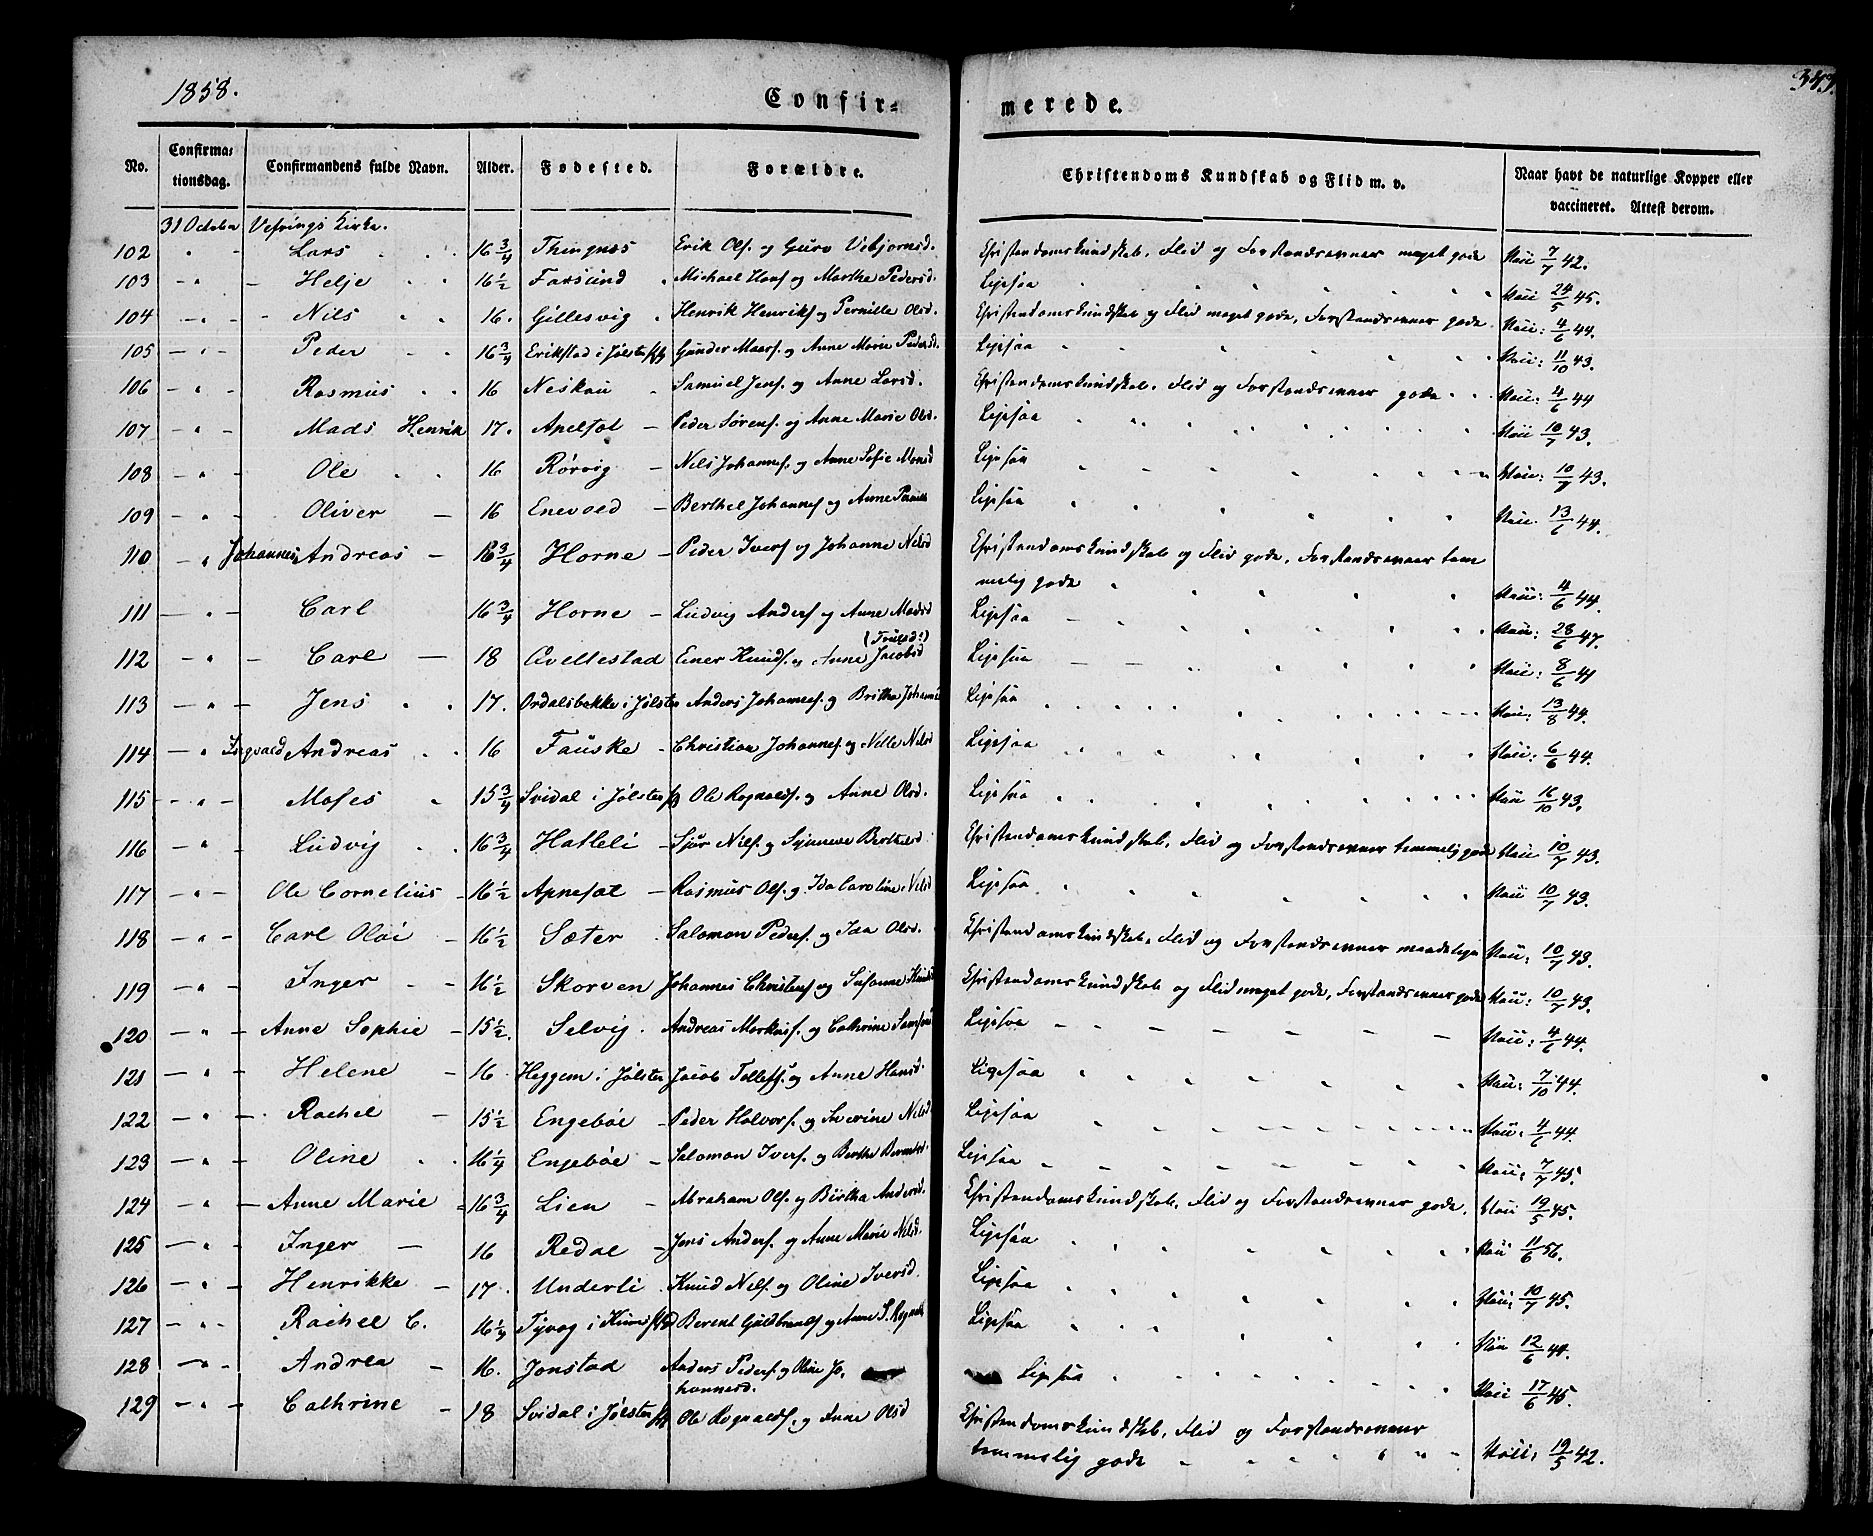 1858.
Confir=
merede.
343.
No.
Confirma=
tionsdag.
Confirmandens fulde Navn.
Alder.
Fødested.
Forældre.
Christendoms Kundskab og Flid m. v.
Naar havt de naturlige Kopper eller
vaccineret. Attest derom.
31 October Vefrings Kirke.
102 " Lars 16 3/4 Thingnes Erik Ols. og Guro Vebjørnsd. Christendomskundskab, Flid og Forstandsevner meget gode Vacc 7/7 42.
103 " Helje 16 1/2 Farsund Michael Hansf og Marthe Pedersd. Ligesaa Vacc 24/5 45.
104 " Nils 16. Gillesvig Henrik Henriksf og Pernille Olsd. Christendomskundskab og Flid meget gode, Forstandsevner gode Vacc: 4/6 44.
105 " Peder 16 3/4 Erikstad i Jølster Gunder Maarf. og Anne Marie Pedersd. Ligesaa Vacc: 11/10 43.
106 " Rasmus 16 Neskau Samuel Jensf. og Anne Larsd. Christendomskundskab, Flid og Forstandsevner gode Vacc: 4/6 44
107 " Mads Henrik 17. Apelset Peder Sørensf. og Anne Marie Olsd. Ligesaa Vacc 10/7 43.
108 " Ole 16 Rørvig Nils Johannesf. og Anne Sofie Monsd Ligesaa Vacc: 10/7 43.
109 " Oliver 16 Enevold Berthel Johannesf og Anne Ligesaa Vacc. 13/6 44.
110 " Johannes Andreas 16 3/4 Horne Peder Iversf og Johanne Nilsd Christendomskundskab og Flid gode, Forstandsevner tem
melig gode Vacc: 4/6 44.
111 " Carl 16 3/4 Horne Ludvig Andersf og Anne Madsd Ligesaa Vacc: 28/6 47.
(Truelsd?)
112 " Carl 18 Avellestad Einer Knudsf. og Anne Jacobsd Ligesaa Vacc: 8/6 41
113 " Jens 17. Ordalsbakke i Jølster Anders Johannesf. og Britha Ligesaa Vacc: 13/8 44.
114 " Ingvald Andreas 16 Fauske Christian Johannesf og Nille Nilsd Ligesaa Vacc: 6/6 44.
115 " Moses 15 3/4 Svidal i Jølster Ole Rognaldsf. og Anne Olsd. Ligesaa Vacc 16/10 43.
116 " Ludvig 16 3/4 Hatleli Sjur Nilsf. og Synneve Berthelsd Christendomskundskab, Flid og Forstandsevner temmelig gode Vacc 10/7 43.
117 " Ole Cornelius 16 1/2 Apneset Rasmus Olsf. og Ida Caroline Nilsd Ligesaa Vacc 10/7 43.
118 " Carl Olai 16 1/2 Sæter Salomon Pedersf. og Ida Olsd. Christendomskundskab, Flid og Forstandsevner maadelige Vacc: 10/7 43.
119 " Inger 16 1/2 Skorven Johannes Christensf og Susanne Christendomskundskab og Flid meget gode, Forstandsevner gode Vacc: 10/7 43.
120 " Anne Sophie 15 1/2. Selvig. Andreas Markusf. og Cathrine Ligesaa Vacc: 4/6 44.
121 " Helene 16 Heggem i Jølster Jacob Tollefsf. og Anne Hansd. Ligesaa Vacc: 7/10 44.
122 " Rachel 15 1/2 Engebøe Peder Halvorsf. og Severine Nilsd Ligesaa Vacc: 4/6 44.
123 " Oline 16 1/4 Engebøe Salomon Iversf. og Berthe Ligesaa Vacc: 7/7 45.
124 " Anne Marie 16 3/4 Lien Abraham Olsf. og Birtha Andersd. Christendomskundskab, Flid og Forstandsevner gode. Vacc 19/5 45.
125 " Inger 16 Redal Jens Andersf. og Anne Marie Nilsd. Ligesaa Vacc 11/6 56.
126 " Henrikke 17. Underli Knud Nilsf. og Oline Iversd. Ligesaa Vacc: 10/7 45.
127 " Rachel C. 16 1/4 Tyvog i Kinn Berent Guldbrandsf og Anne S. Ligesaa Vacc 12/6 44.
128 " Andrea 16. Jonstad Anders Pedersf. og Oline Jo= Ligesaa Vacc 17/6 45.
hannesd.
129 " Cathrine 18 Svidal i Jølster Ole Rognaldsf. og Anne Olsd Christendomskundskab, Flid og Forstandsevner
temmelig gode Vacc: 19/5 42.